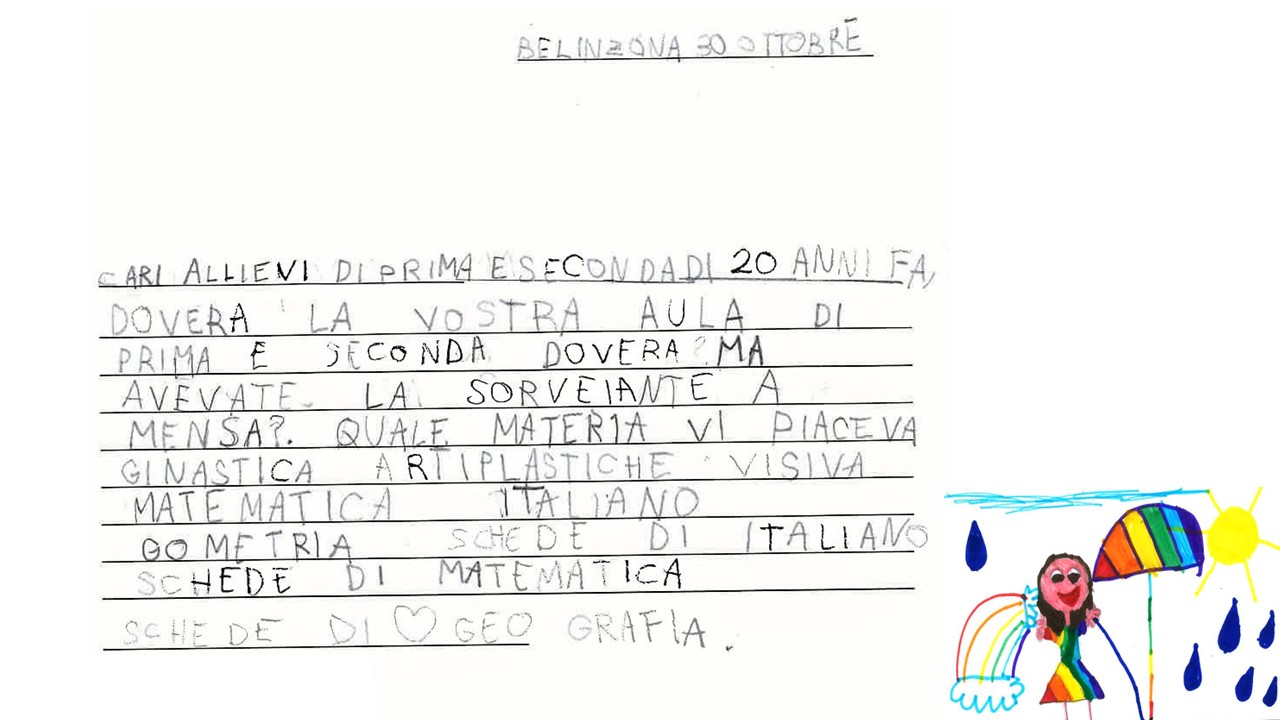 BELINZONA 30 OTTOBRE
CARI ALLIEVI DI PRIMA E SECONDA DI 20 ANNI FA,
DOVERA LA VOSTRA AULA DI
PRIMA E SECONDA DOVERA? MA
AVEVATE LA SORVEIANTE A
MENSA?. QUALE MATERIA VI PIACEVA
GINASTICA ARTIPLASTICHE VISIVA
MATEMATICA ITALIANO
GOMETRIA SCHEDE DI ITALIANO
SCHEDE DI MATEMATICA
SCHEDE DI ♡ GEO GRAFIA.